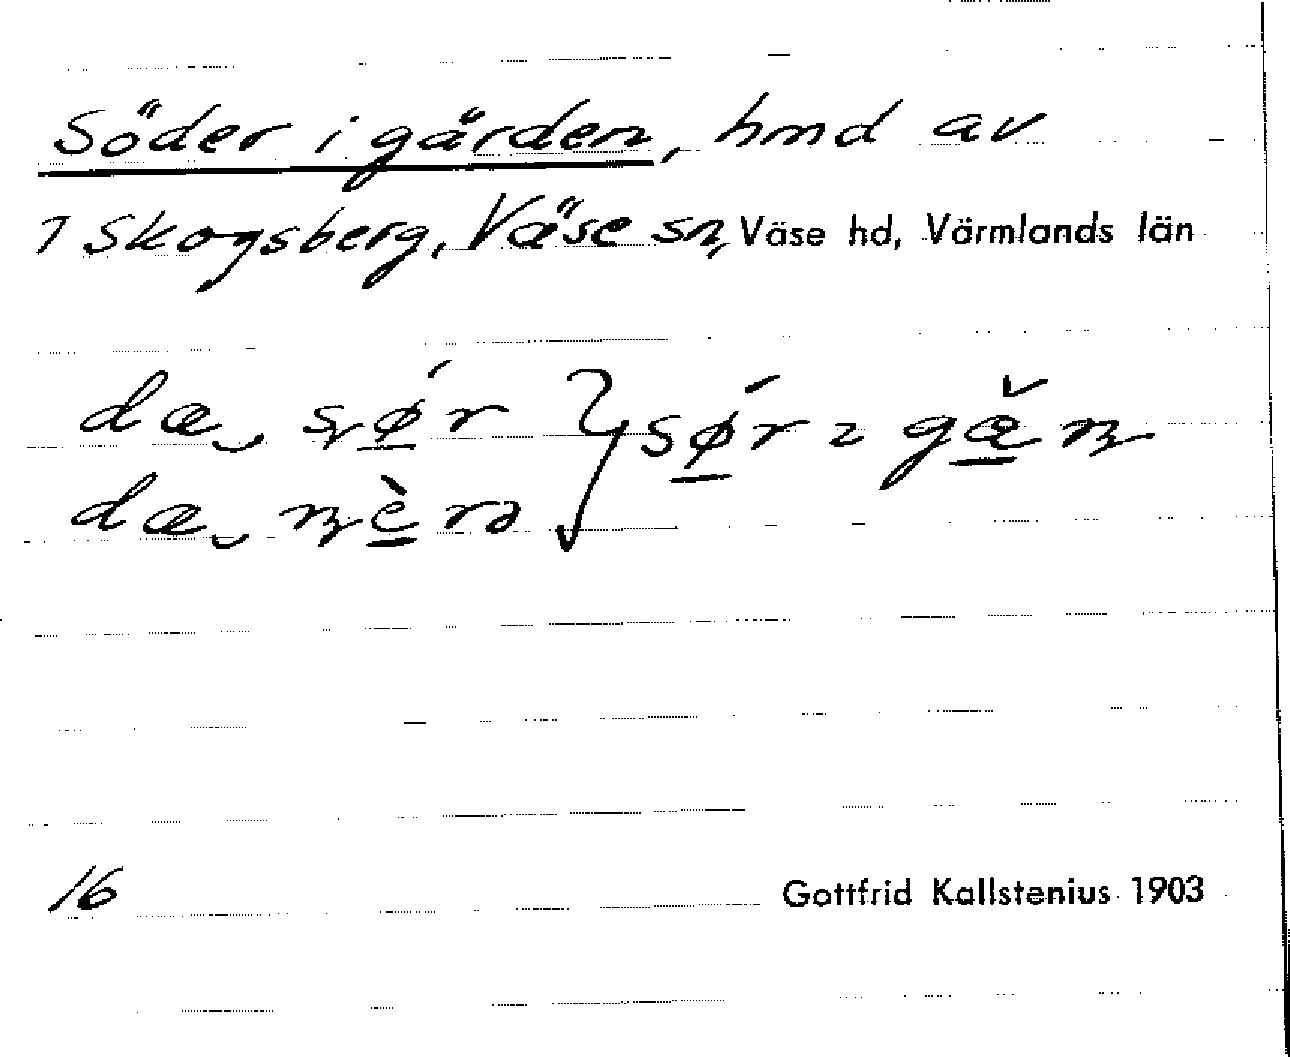 Söder i gården, hmd av
1 Skogsberg, Väse sn, Väse hd, Värmlands län
dæ sǿr } sǿr ı gæ̌ɳ
dæ ɳèrə
16
Gottfrid Kallstenius 1903